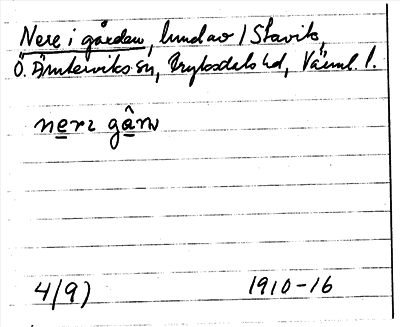 Nere i gården, hemdav / Stavik,
Ö. Ämterviks sn, Fryksdals hd, Värml. l.
nerɩ gân
4/9)
1910-16